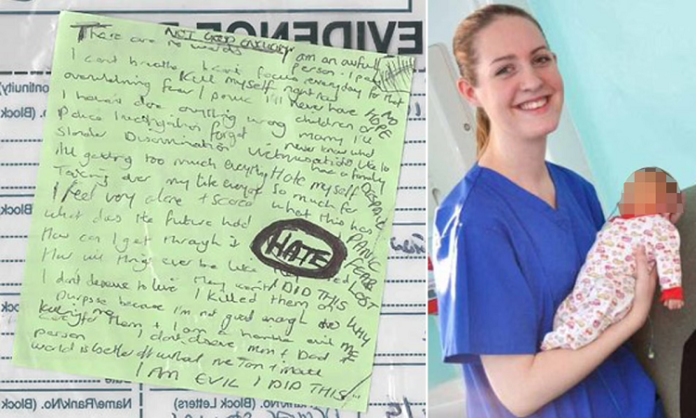 EVIDENCE
NOT GOOD ENOUGH
There are no words I am an awful
person - I pay
I can't breathe I can't focus everyday for that
Kill myself right now
overwhelming fear / panic I'll never have NO
HOPE
I haven't done anything wrong children or
Police investigation forget marry I'll
never know what
Slander Discrimination Victimisation like to
have a family
All getting too much everything Hate myself
Taking over my life so much for
what this has
I feel very alone + scared
What does the future hold
How can I get through it
HATE
DESPAIR
PANIC
FEAR
LOST
How will things ever be like
I DID THIS
WHY
ME
I don't deserve to live I killed them on
purpose because I'm not good enough
to care for them + I am a horrible evil
person I don't deserve Mum + Dad
world is better off without me
I AM EVIL I DID THIS
Continuity
(Block
No. (Block
Name/Rank/No. (Block